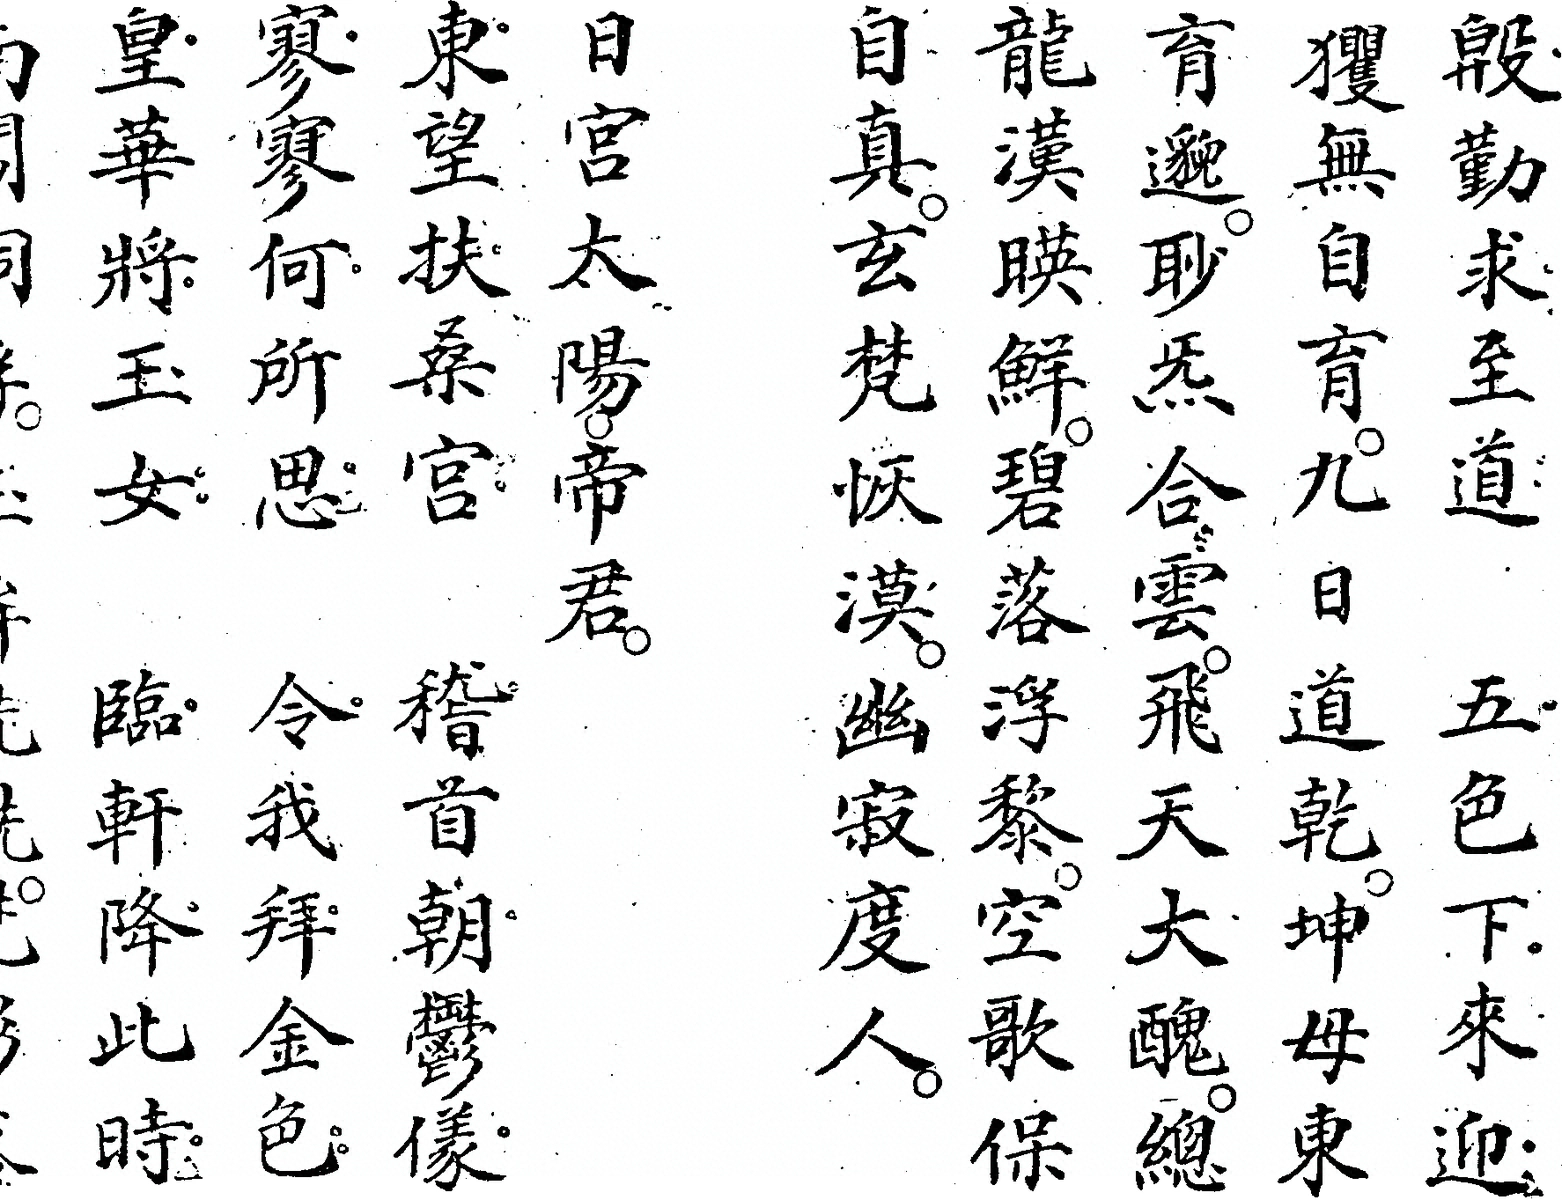 慇勤求至道 五色下來迎
玃無自育九日道乾坤母東
育邈眇炁合雲飛天大醜總
龍漢暎鮮碧落浮黎空歌保
自真玄梵恢漠幽寂度人
日宮太陽帝君
東望扶桑宮 稽首朝鬱儀
寥寥何所思 令我拜金色
皇華將玉女 臨軒降此時